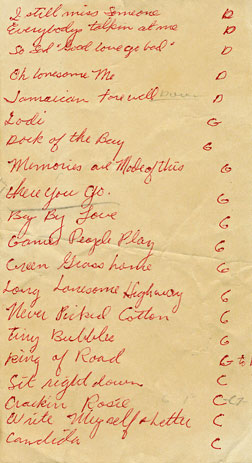 I still miss Someone D
Everybodys talkin at me D
So Sad "Good love go bad" D
Oh lonesome Me D
Jamaican Farewell D
Lodi G
Dock of the Bay G
Memories are Made of This G
there You Go. G
By By Love G
Games People Play G
Green Grass home G
Long Lonesome Highway G
Never Picked Cotton G
Tiny Bubbles G
King of Road G
Sit right down C
Cracklin Rosie C
Write Myself a Letter C
Candida C